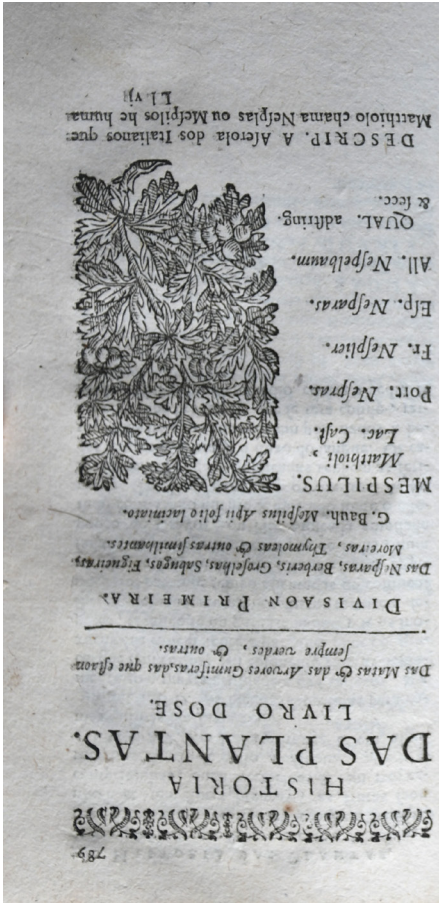 789
HISTORIA
DAS PLANTAS.
LIVRO DOSE.
Das Matas & das Arvores Gumiferas, das que estaon
sempre verdes, & outras.
DIVISAON PRIMEIRA
Das Nesparas, Berberis, Groselhas, Sabugos, Figueiras,
Moreiras, Thymoleas & outras similhantes.
G. Bauh. Mespilus Apii folio laciniato.
MESPILUS.
Matthioli,
Lac. Cast.
Port. Nespras.
Fr. Nesplier.
Esp. Nesparas.
All. Nespelbaum.
QUAL. adstring.
& secc.
DESCRIP. A Aserola dos Italianos que
Matthiolo chama Nesplas ou Mespilos he huma
Ll vij